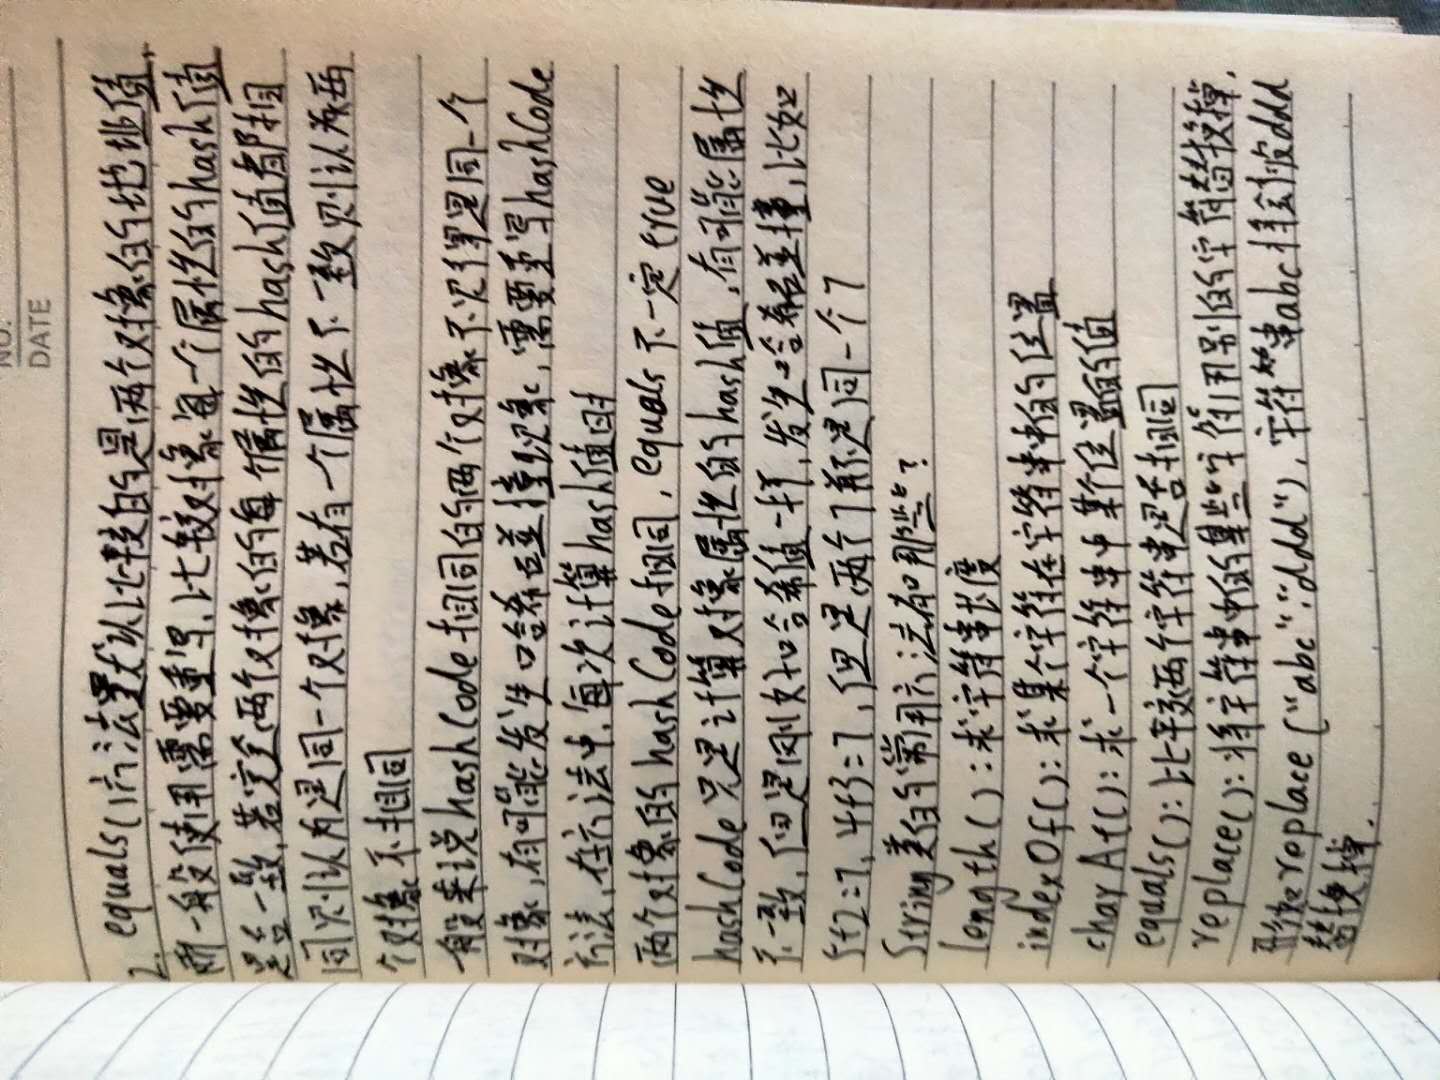 NO.
DATE
2. equals()方法默认比较的是两个对象的地址值,
而一般使用需要重写,比较对象每一个属性的hash值
是否一致,若完全两个对象的每个属性的hash值都相
同则认为是同一个对象,若有一个属性不一致则认为两
个对象不相同
一般来说hashCode相同的两个对象不仅仅是同一个
对象,有可能发生哈希碰撞现象,需要重写hashCode
方法,在方法中,每次计算hash值时
两个对象的hashCode相同,equals不一定true
hashCode只是计算对象属性的hash值,有可能属性
不一致,但是刚好哈希值一样,发生哈希碰撞,比如
5+2=7,4+3=7,但是两个7并不是同一个7
String类的常用方法有哪些?
length():求字符串长度
indexOf():求某个字符在字符串中的位置
charAt():求一个字符串中某个位置的值
equals():比较两个字符串是否相同
replace():将字符串中的某些字符用别的字符替换掉,
比如replace("abc":"ddd"),字符串abc将会被ddd
替换掉.